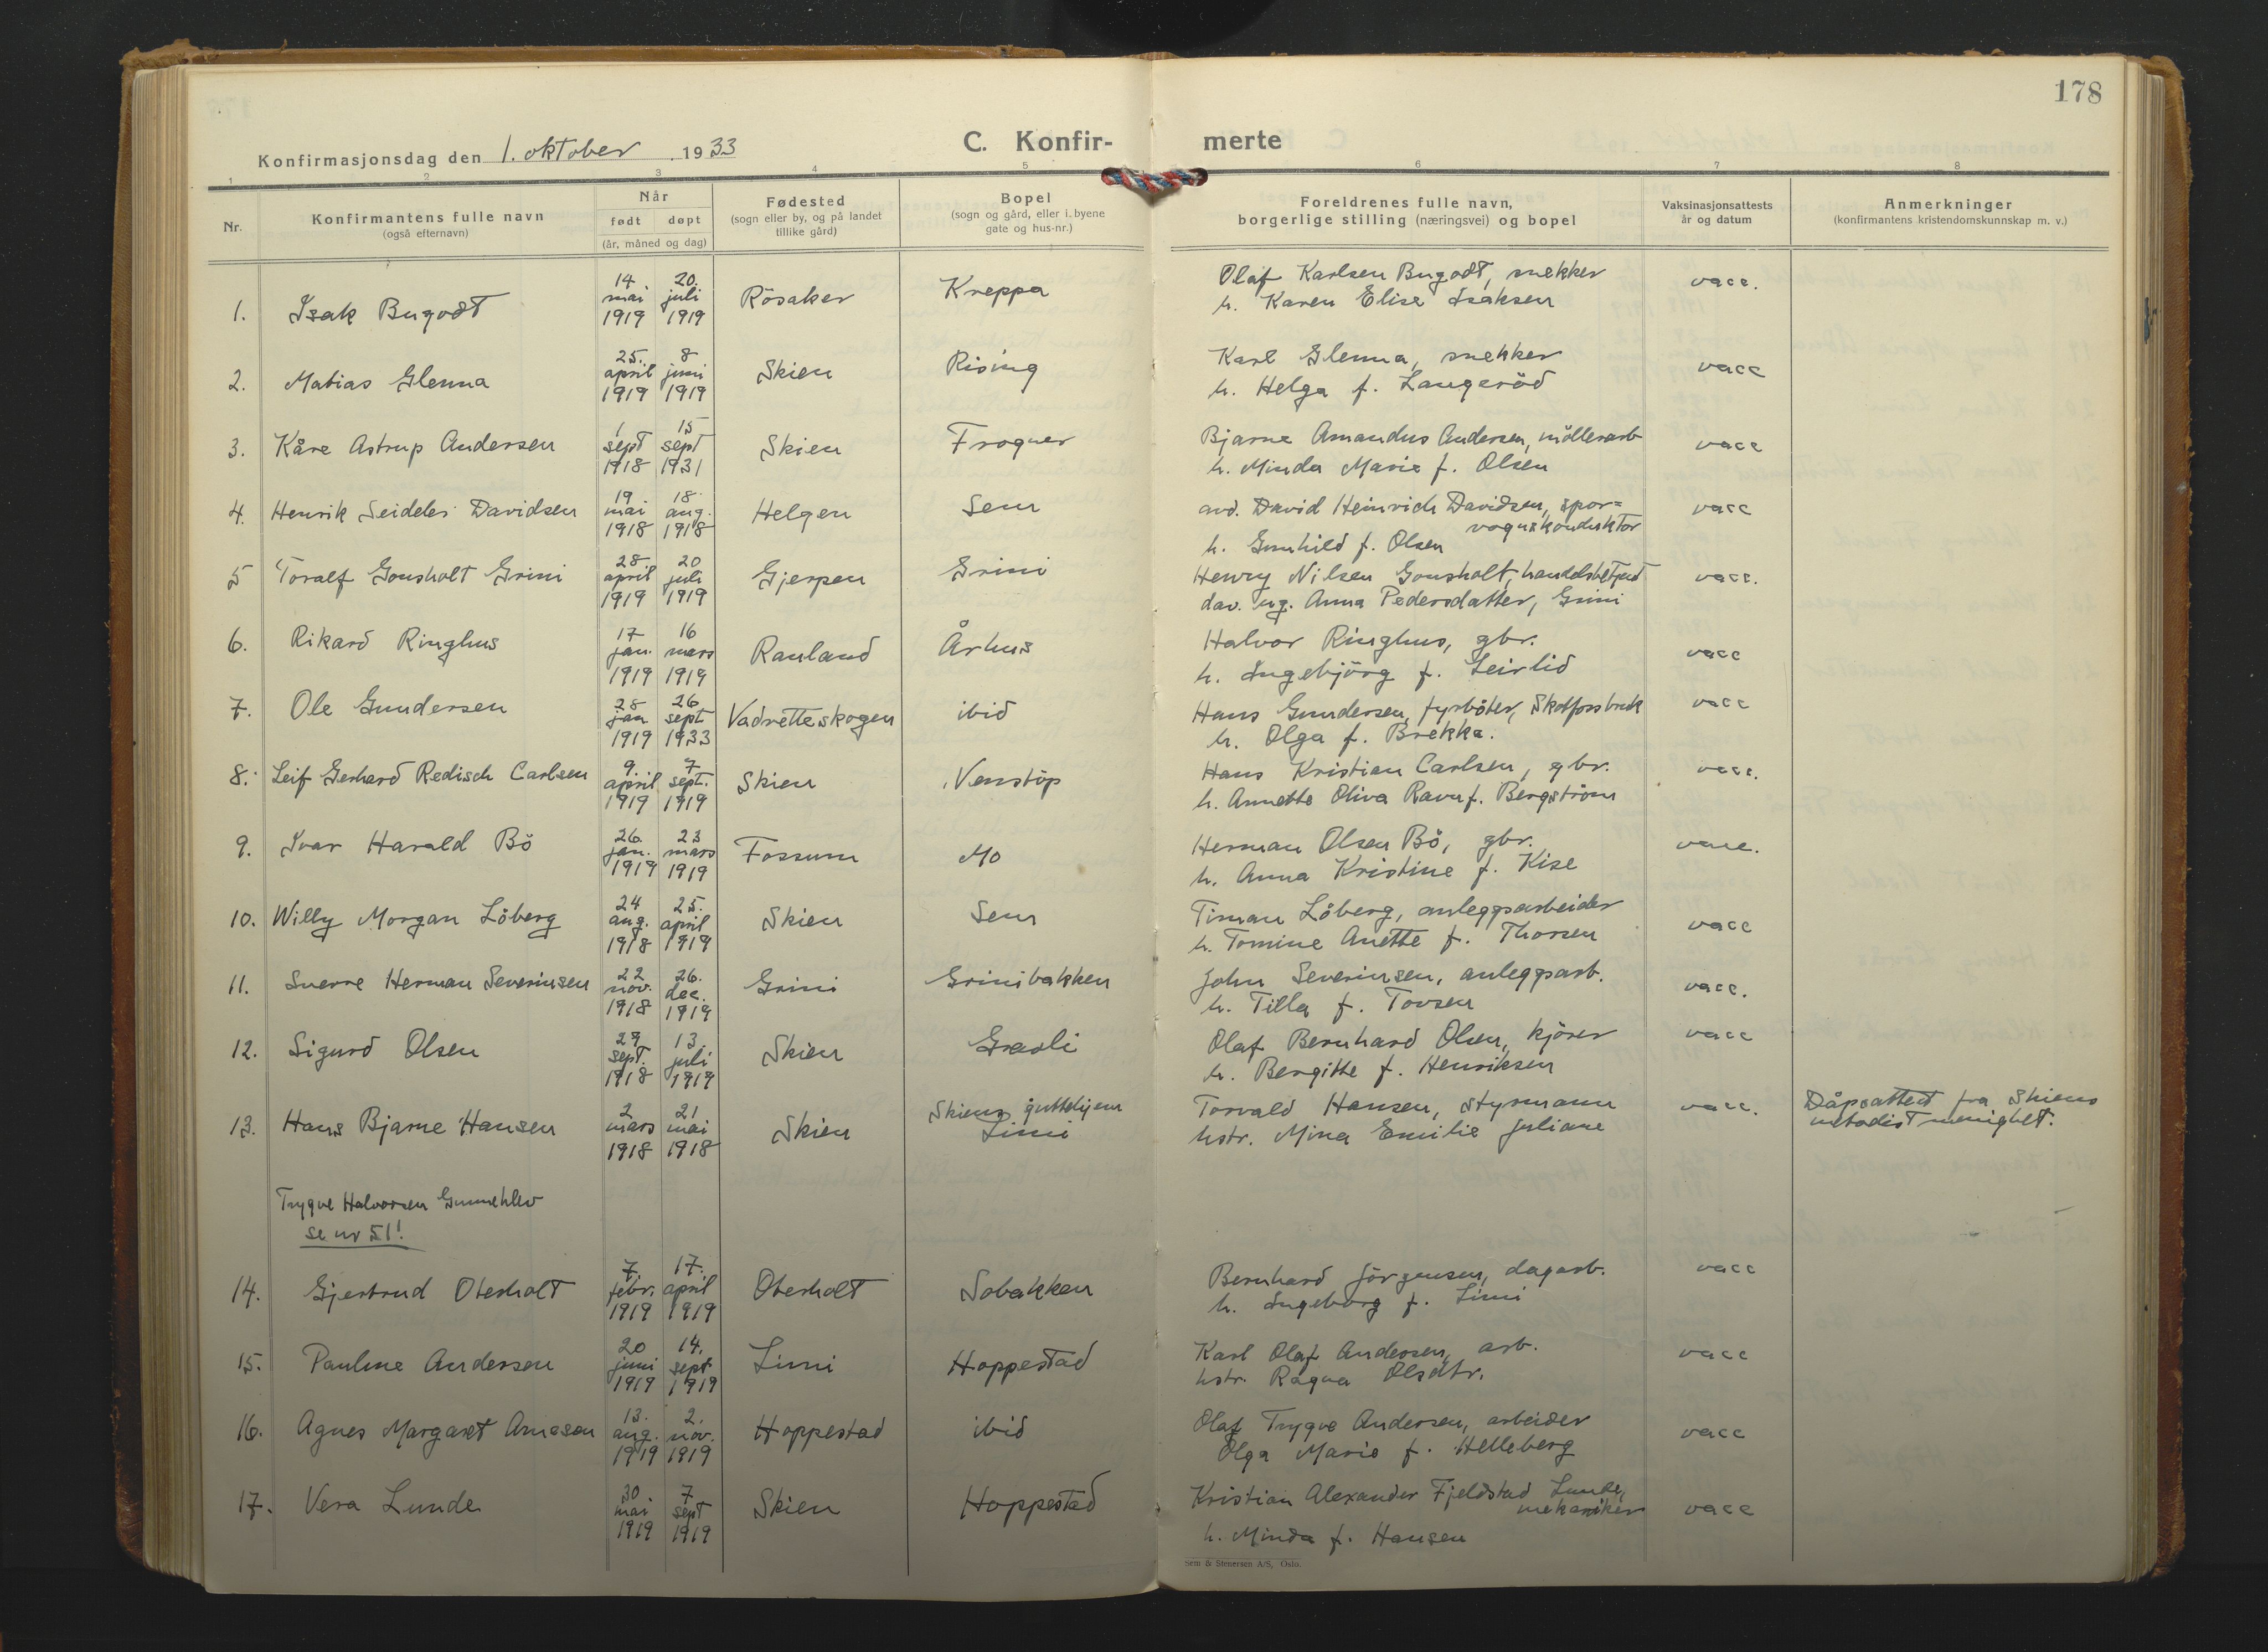 178
Konfirmasjonsdag den 1. oktober 1933
C. Konfir- merte
1 2 3 4 5 6 7 8
Nr.
Konfirmantens fulle navn
(også efternavn)
Når
født døpt
(år, måned og dag)
Fødested
(sogn eller by, og på landet
tillike gård)
Bopel
(sogn og gård, eller i byene
gate og hus-nr.)
Foreldrenes fulle navn,
borgerlige stilling (næringsvei) og bopel
Vaksinasjonsattests
år og datum
Anmerkninger
(konfirmantens kristendomskunnskap m. v.)
1. Isak Bugodt
14. mai 1919
20. juli 1919
Rösaker
Kreppa
Olaf Karlsen Bugodt, snekker
h. Karen Elise Isaksen
vacc.
2. Matias Glenna
25. april 1919
8 juni 1919
Skien
Rising
Karl Glenna, snekker
h. Helga f. Langeröd
vacc
3. Kåre Astrup Andersen
1 sept 1918
15 sept 1931
Skien
Frogner
Bjarne Amandus Andersen, möllerarb
h. Minda Marie f. Olsen
vacc
4. Henrik Seideler Davidsen
19 mai 1918
18 aug. 1918
Helgen
Sem
avd. David Heinrich Davidsen, spor=
vognskonduktor
h. Gunhild f. Olsen
vacc
5 Toralf Gonsholt Grini
28. april 1919
20 juli 1919
Gjerpen
Grini
Henry Nilsen Gonsholt, handelsbetjent
dav. ug. Anna Pedersdatter, Grini
vacc.
6. Rikard Ringhus
17 jan. 1919
16 mars 1919
Rauland
Århus
Halvor Ringhus, gbr.
h. Ingebjörg f. Leirlid
vacc
7. Ole Gundersen
28 jan 1919
26 sept 1933
Vadretteskogen
ibid
Hans Gundersen, fyrböter, Skotfoss bruk
h. Olga f. Brekka.
vacc
8. Leif Gerhard Redisch Carlsen
9. april 1919
7 sept. 1919
Skien
Venstöp
Hans Kristian Carlsen, gbr.
h. Annette Oliva Ravn f. Bergström
vacc.
9. Ivar Harald Bö
26. jan. 1919
23 mars 1919
Fossum
Mo
Herman Olsen Bö, gbr.
h. Anna Kristine f. Kise
vacc.
10. Willy Morgan Löberg
24 aug. 1918
25. april 1919
Skien
Sem
Timan Löberg, anleggsarbeider
h. Tomine Anette f. Thorsen
vacc
11. Sverre Herman Severinsen
22 nov. 1918
26. dec. 1919
Grini
Grinibakken
John Severinsen, anleggsarb.
h. Tilla f. Tovsen
vacc.
12. Sigurd Olsen
29 sept. 1918
13. juli 1919
Skien
Grasli
Olaf Bernhard Olsen, kjörer
h. Bergitte f. Henriksen
vacc
13. Hans Bjarne Hansen
2 mars 1918
21 mai 1918
Skien
Skiens guttehjem
Limi
Torvald Hansen, styrmann
hstr. Mina Emilie Juliane
vacc.
Dåpsattest fra Skiens
metodistmenighet.
Trygve Halvorsen Gunneklev
se nr 51!
14. Gjertrud Oterholt
7. febr. 1919
17. april 1919
Oterholt
Sobakken
Bernhard Jörgensen, dagarb.
h. Ingeborg f. Limi
vacc
15. Pauline Andersen
20 juni 1919
14. sept 1919
Limi
Hoppestad
Karl Olaf Andersen, arb.
hstr. Ragna Olsdtr.
vacc
16. Agnes Margaret Arnesen
13. aug. 1919
2. nov. 1919
Hoppestad
ibid
Olaf Trygve Andersen, arbeider
Olga Marie f. Helleberg
vacc
17. Vera Lunde
30 mai 1919
7 sept 1919
Skien
Hoppestad
Kristian Alexander Fjeldstad Lunde,
mekaniker
h. Minda f. Hansen
vacc
Sem & Stenersen A/S, Oslo.